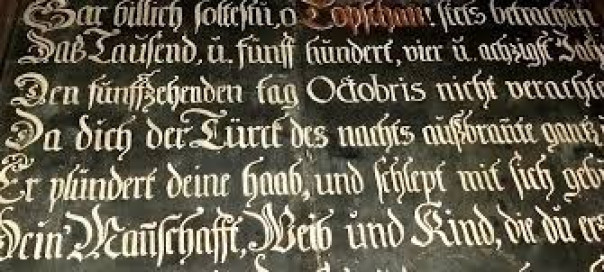 Gar billich soltestu, o Topschau! stets betrachten
Daß Tausend, ü. fünff hündert, vier ü. achzigst Jahr
Den fünffzehenden tag Octobris nicht verachte
Da dich der Türck des nachts außbrañte gantz
Er plündert deine haab, und schlept mit sich geb
Dein Mañschafft, Weib und Kind, die dü er